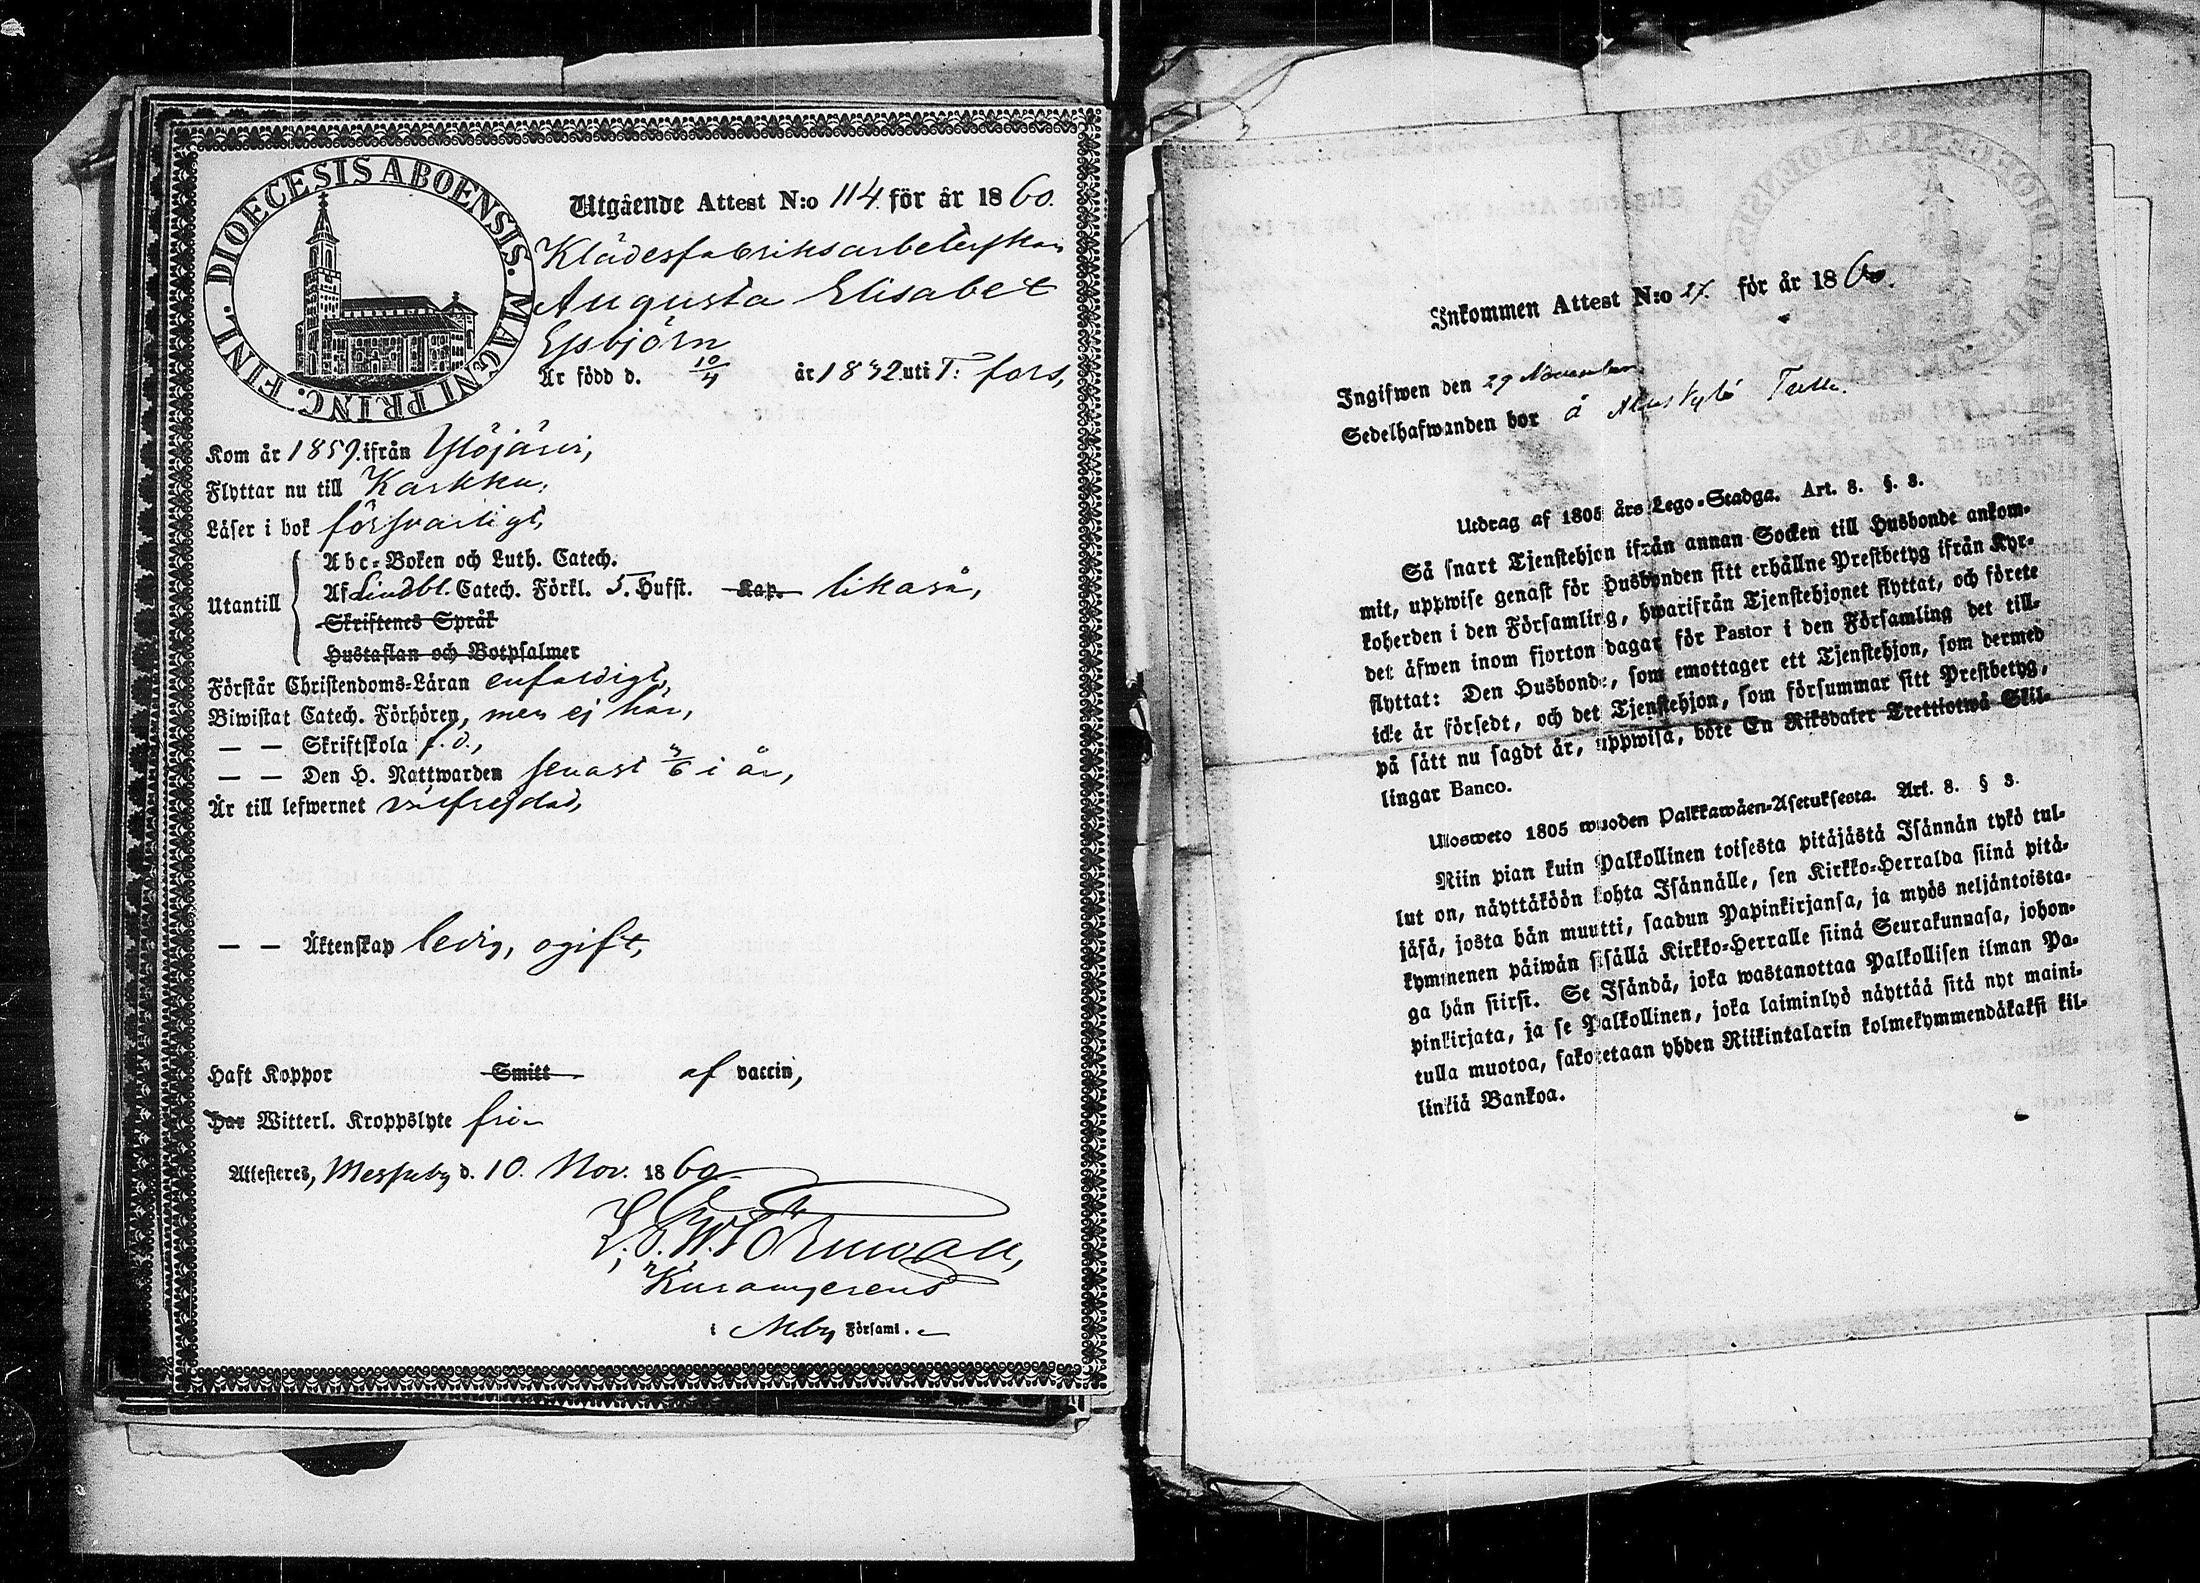 DIOECESIS ABOENSIS. MAGNI PRINC. FINL.
Utgående Attest N:o 114 för år 1860.
Klädesfabriksarbeterskan
Augusta Elisabet
Essbjörn
Är född d. 10/4 år 1832 uti T:fors,
Kom år 1859. ifrån Ylöjärvi,
Flyttar nu till Karkku,
Läser i bok försvarligt,
Utantill
Abc-Boken och Luth. Catech.
Af Lindbl. Catech. Förkl. 5. Hufst. Kap. likaså,
Skriftenes Språk
Hustaflan och Botpsalmer
Förstår Christendoms-Läran enfaldigt,
Biwistat Catech. Förhören, men ej här,
— — Skriftskola f. d.,
— — Den H. Nattwarden senast 3/6 i år,
Är till lefwernet välfrejdad,
— — Äktenskap ledig, ogift,
Haft Koppor Smitt af vaccin,
Har Witterl. Kroppslyte fri
Attesteres, Messuby d. 10. Nov. 1860
Törnwall,
i M:by Församl.
Inkommen Attest N:o 27. för år 1860.
Ingifwen den 29 November
Sedelhafwanden bor å
Utdrag af 1805 års Lego-Stadga. Art. 8. §. 3.
Så snart Tjenstehjon ifrån annan Socken till Husbonde ankom-
mit, uppwise genast för Husbonden sitt erhållne Prestbetyg ifrån Kyr-
koherden i den Församling, hwarifrån Tjenstehjonet flyttat, och förete
det äfwen inom fjorton dagar för Pastor i den Församling det till-
flyttat: Den Husbonde, som emottager ett Tjenstehjon, som dermed
icke är försedt, och det Tjenstehjon, som försummar sitt Prestbetyg,
på sätt nu sagdt är, uppwisa, böte En Riksdaler Trettiotwå Skil-
lingar Banco.
Ulosweto 1805 wuoden Palkkawäen-Asetuksesta. Art. 8. § 3.
Niin pian kuin Palkollinen toisesta pitäjästä Isännän tykö tul-
lut on, näyttäköön kohta Isännälle, sen Kirkko-Herralda siinä pitä-
jäsä, josta hän muutti, saadun Papinkirjansa, ja myös neljäntoista-
kymmenen päiwän sisällä Kirkko-Herralle siinä Seurakunnasa, johon-
ga hän siirsi. Se Isändä, joka wastanottaa Palkollisen ilman Pa-
pinkirjata, ja se Palkollinen, joka laiminlyö näyttää sitä nyt maini-
tulla muotoa, sakotetaan yhden Riikintalarin kolmekymmendäkaksi kil-
linkiä Bankoa.